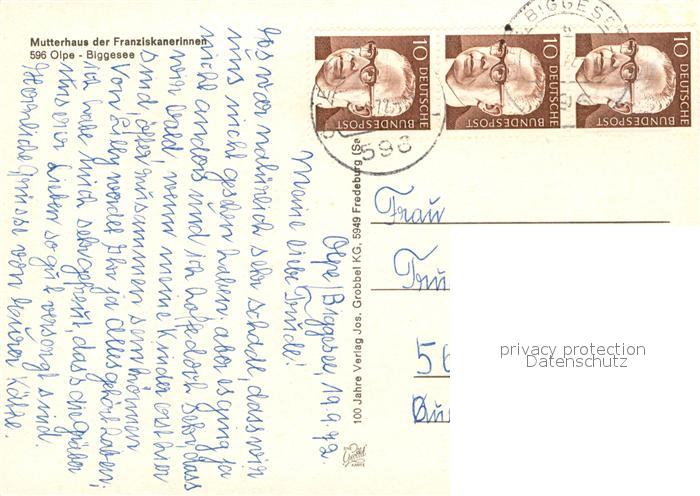 Mutterhaus der Franziskanerinnen
596 Olpe - Biggesee
Olpe/Biggesee, 19.9.72.
Meine liebe Trude!
Es war natürlich sehr schade, dass wir
uns nicht gesehen haben, aber es ging ja
nicht anders und ich hoffe doch sehr, dass
wir bald, wenn meine Kinder erst hier
sind, öfter zusammen sein können
Von Elly werdet Ihr ja alles gehört haben.
Ich habe mich sehr gefreut, dass die Gräber
unserer Lieben so gut versorgt sind.
Herzliche Grüsse von Eurer Käthe.
100 Jahre Verlag Jos. Grobbel KG, 5949 Fredeburg (Sa
Grobbel
KARTE
10 DEUTSCHE BUNDESPOST
10 DEUTSCHE BUNDESPOST
10 DEUTSCHE BUNDESPOST
BIGGESEE
596
Frau
Tru
56
privacy protection
Datenschutz